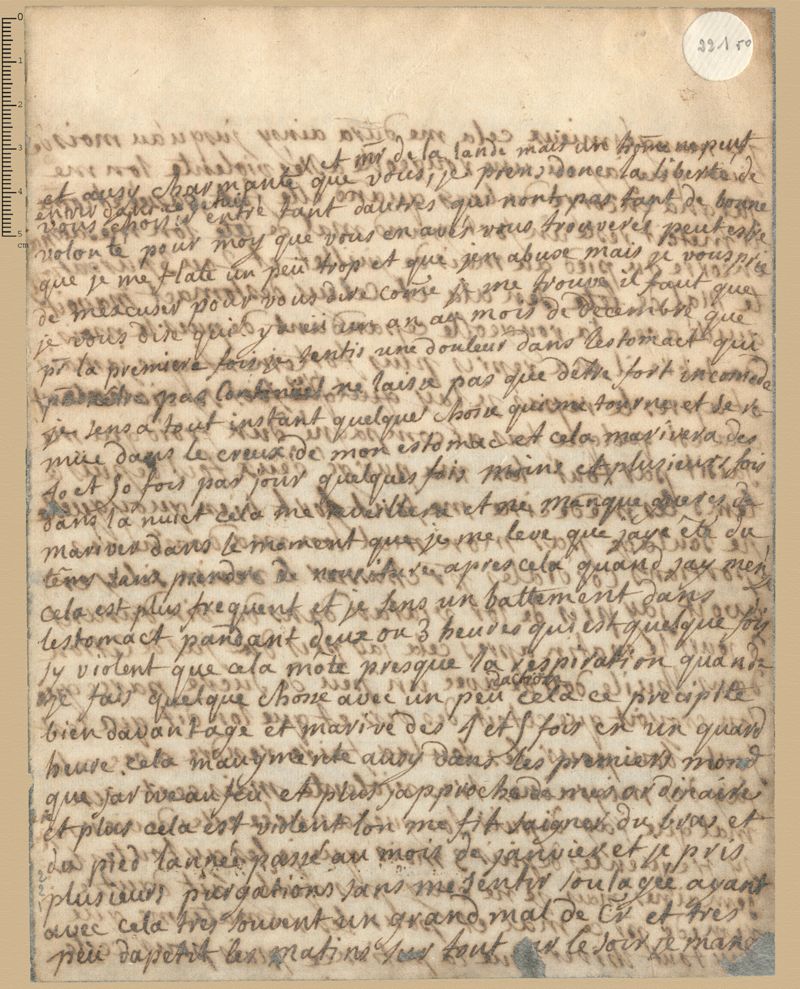 221 50
et mr de la lande mait un homme ne peut
et ausy charmante que vous, je prens donc la liberté de
vous choisir entre tant dautres qui nont pas tant de bonne
volonte pour moy que vous en avés vous trouverés peut estre
que je me flate un peu trop et que jen abuse mais je vous prie
de mexcuser pour vous dire come je me trouve il faut que
je vous dise quil y a eü un an au mois de decembre que
pr la premiere fois je sentis une douleur dans lestomact qui
pas Continuel ne laisse pas que detre fort incomode
je sens a tout instant quelque chosse qui me tourne et se re-
mue dans le creux de mon estomac et cela marivera des
40 et 50 fois par jour quelques fois moins et plusieurs fois
dans la nuict cela me reveillera et ne manque gueres de
mariver dans le moment que je me leve que jaye été du
tems sans prendre de nouriture apres cela quand jay mengé
cela est plus frequent et je sens un battement dans
lestomact pandant deux ou 3 heures qui est quelque fois
sy violent que cela mote presque la respiration quand
je fais quelque chosse avec un peu dactions cela ce precipite
bien davantage et marive des 4 et 5 fois en un quard
heure. cela maugmente ausy dans les premiers moments
que jarive au feu et plus japproche de mes ordinaires
et plus cela est violent lon me fit saigner du bras et
du pied lannée passé au mois de janvier et je pris
plusieurs purgations sans me sentir soulagée ayant
avec cela tres souvent un grand mal de et tres
peu dapetit les matins sur tout car le soir je mange